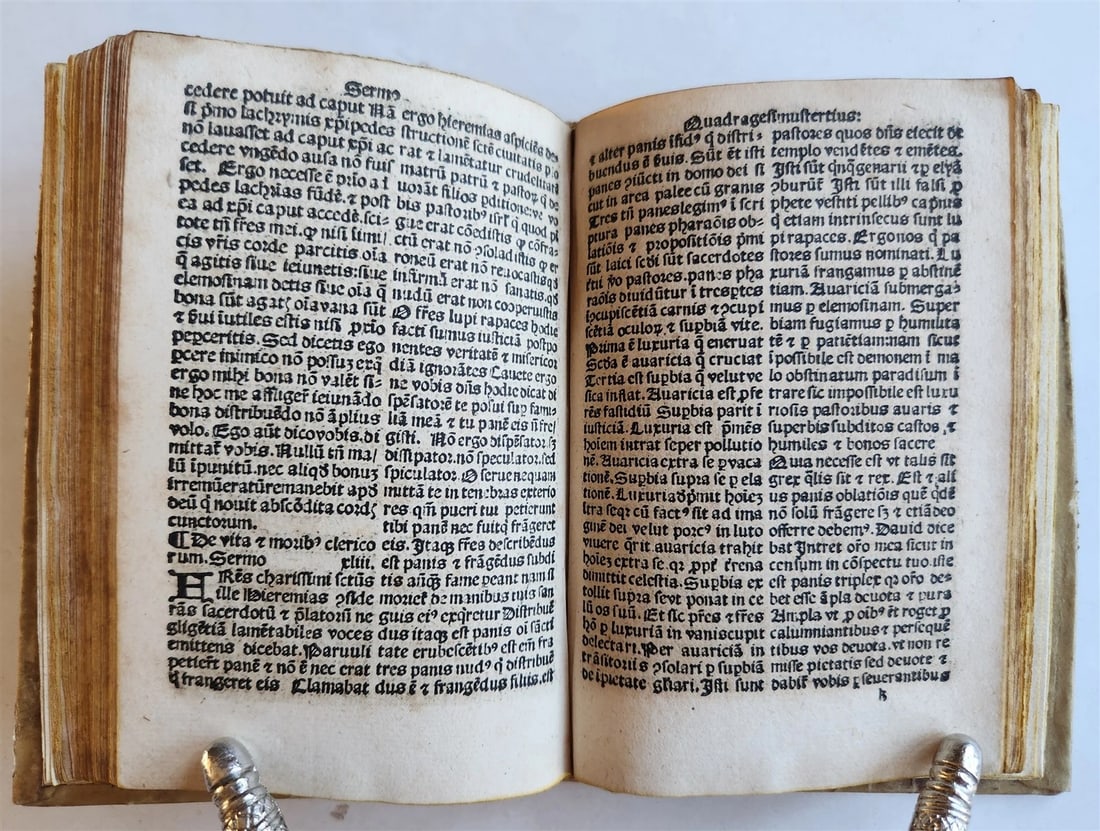 Sermo
cedere potuit ad caput Nā
si p̄mo lachrymis xp̄i pedes
nō lauasset ad caput xp̄i ac
cedere vngēdo ausa nō fuis
set. Ergo necesse ē prio a i
pedes lachrias fūdē. ⁊ post
ea ad xp̄i caput accedē. sci-
tote tn̄ fres mei. ꝙ nisi simi
cis vr̄is corde parcitis oīa
q̄ agitis siue ieiunetis: siue
elemosinam detis siue oīa q̄
bona sūt agat oīa vana sūt
⁊ ḡui iutiles estis nisi prio
peperceritis. Sed dicetis ego
pcere inimico nō possuꝫ erq̄
ergo mihi bona nō valēt si-
ne hoc me affliger ieiunādo
bona distribuēdo nō āplius
volo. Ego aūt dico vobis. di
mittat vobis. Nullū tn̄ ma/
lū ipunitū. nec aliqd bonuꝫ
irremūeratū remanebit apd
deū q̄ nouit abscōdita cord
cunctorum.
¶ De vita ⁊ morib⁹ clerico
rum. Sermo xliii.
FRēs charissimi sctūs
ille Hieremias ꝯside
rās sacerdotū ⁊ p̄latorū ne
gligētiā lamētabiles voces
emittens dicebat. Paruuli
petierūt panē ⁊ nō ē nec erat
q̄ frangeret eis Clamabat
ergo hieremias aspiciēs de
structionē sctē ciuitatis plo
rat ⁊ lamētatur crudelitatē
matrū patrū ⁊ pastorꝝ q̄ de
uorāt filios ꝑditione: ve vo
bis pastorib⁹ isrl̄ q̄ quod pī
gue erat cōedistis ꝙ cōfra-
ctū erat nō ꝯsoladistis ꝙ er
roneū erat nō reuocastis qd
infirmū erat nō sanatis. qd
nudū erat non cooperuistis
O frēs lupi rapaces hodie
facti sumus iusticiā postpo
nentes veritatē ⁊ misericor
diā ignorātes Cauete ergo
ne vobis dn̄s hodie dicat di
spēsatorē te posui suꝑ fami-
liā meā ⁊ tu panē eis n̄ fre
gisti. Nō ergo dispēsator. sꝫ
dissipator. nō speculator. sed
spiculator. O serue nequam
mittā te in tenebras exterio
res qm̄ pueri tui petierunt
tibi panē nec fuit q̄ frāgeret
eis. Itaqꝫ frēs describēdus
est panis ⁊ frāgēdus subdi
tis añqꝫ fame ꝑeant nam si
moriet de manibus tuis san
guis ei⁹ exq̄retur Distribuē
dus itaqꝫ est panis oī sācti
tate erubescētib⁹ est em̄ fra
tres panis nud⁹ q̄ distribuē
dus ē ⁊ frangēdus filiis. est
Quadragesimustertius:
⁊ alter panis īfid⁹ q̄ distri-
buendus ē ḡuis. Sūt ēt isti
panes ꝯiūcti in domo dei si
cut in area palee cū granis
Tres tn̄ panes legim⁹ ī scri
ptura panes pharaōis ob-
latiōis ⁊ propositiōis p̄mi
sūt laici scdi sūt sacerdotes
tui ꝟo pastores. panes pha
raōis diuidūtur ī tres ꝑtes
ꝯcupiscētiā carnis ⁊ ꝯcupi
scētiā oculoꝝ, ⁊ suꝑbiā vite.
Prima ē luxuria q̄ eneruat
Scda ē auaricia q̄ cruciat
Tertia est suꝑbia q̄ velut ve
sica inflat. Auaricia est ꝑfe
rēs fastidiū Suꝑbia parit ī
iusticiā. Luxuria est p̄mēs
hoiem intrat seper pollutio
nē. Auaricia extra se ꝑ vaca
tionē. Suꝑbia supra se ꝑ ela
tionē. Luxuria dp̄mit hoieꝫ
ītra seqr̄ cū fact⁹ sit ad ima
ginē dei velut porc⁹ in luto
viuere q̄rit. auaricia trahit
hoieꝫ extra se. qr̄ ꝓpt̄ terena
dimittit celestia. Suꝑbia ex
tollit supra se vt ponat in ce
lū os suū. Et sic pr̄es ⁊ frēs
hō ꝑ luxuriā in vanis cupit
delectari. Per auariciā in
trāsitoriis ꝯsolari ꝑ suꝑbiā
de īpietate gl̄iari. Isti sunt
pastores quos dn̄s eiecit de
templo vendētes ⁊ emētes.
Isti sūt qn̄qgenarii ⁊ ꝑ elyā
ꝯburūt Isti sūt illi falsi ꝓ
phete vestiti pellib⁹ caprinis
q̄ etiam intrinsecus sunt lu
pi rapaces. Ergo nos q̄ pa
stores sumus nominati. Lu
xuriā frangamus ꝑ abstinē
tiam. Auariciā submerga-
mus ꝑ elemosinam. Super
biam fugiamus ꝑ humilita
tē ⁊ ꝑ patiētiam: nam sicut
ī possibile est demonem ī ma
lo obstinatum paradisum ī
trare sic impossibile est luxu
riosis pastoribus auaris ⁊
superbis subditos castos, ⁊
humiles ⁊ bonos facere
Quia necesse est vt talis sit
grex q̄lis sit ⁊ rex. Est ⁊ ali
us panis oblatiōis quē qdē
nō solū frāgere sꝫ ⁊ etiā deo
offerre debem⁹. Dauid dice
bat Intret or̄o mea sicut in
censum in cōspectu tuo. iste
est panis triplex qr̄ or̄o de-
bet esse āpla deuota ⁊ pura
Ampla vt ꝓ oib⁹ ēt roget ꝓ
calumniantibus ⁊ persequē
tibus vos deuota. vt non re
misse pietatis sed deuote ⁊
dabit̄ vobis ꝑseuerantibus
h